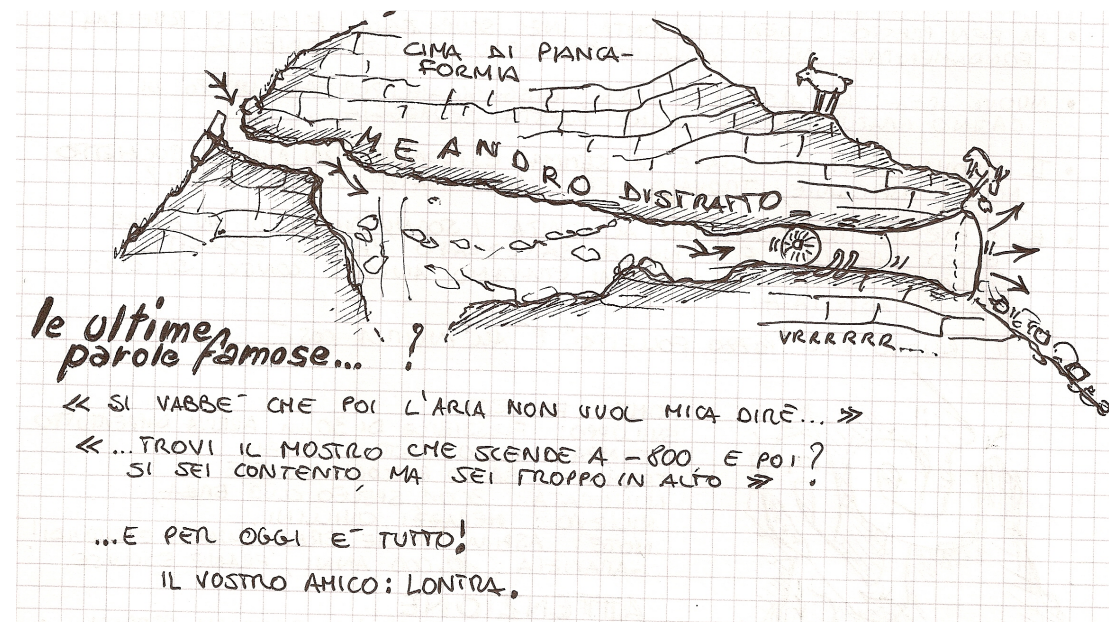 CIMA DI PIANCA-
FORMIA
MEANDRO DISTRATTO
VRRRRRR....
le ultime
parole famose... ?
« SI VABBE' CHE POI L'ARIA NON VUOL MICA DIRE... »
« ...TROVI IL MOSTRO CHE SCENDE A -800, E POI?
SI SEI CONTENTO, MA SEI TROPPO IN ALTO » !
...E PER OGGI E' TUTTO!
IL VOSTRO AMICO: LONTRA.